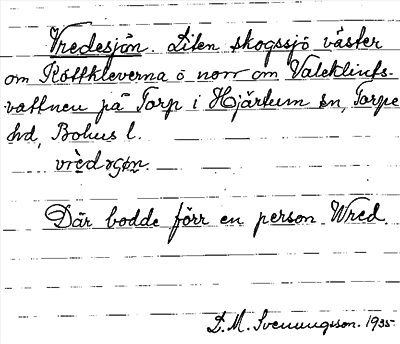 Vredesjön. Liten skogssjö väster
om Röttkleverna o norr om Valeklints-
vattnen på Torp i Hjärtum sn, Torpe
hd, Bohus l.
Där bodde förr en person Wred.
D. M. Svenungsson. 1935